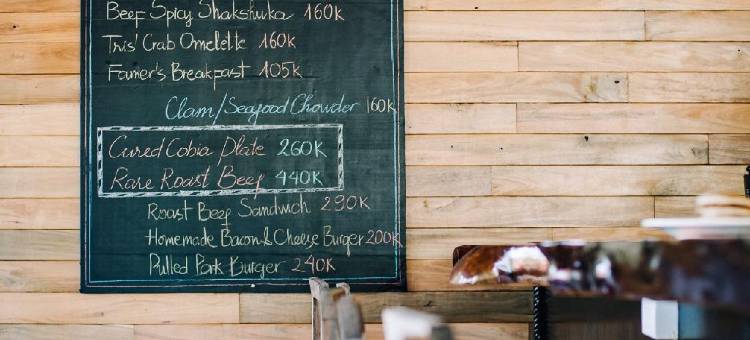 Beef Spicy Shakshuka 160K
Tris' Crab Omelette 160K
Famer's Breakfast 105K
Clam/Seafood Chowder 160K
Cured Cobia Plate 260K
Rare Roast Beef 440K
Roast Beef Sandwich 290K
Homemade Bacon & Cheese Burger 200K
Pulled Pork Burger 240K